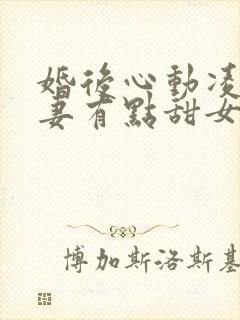 婚後心動凌
妻有點甜女
博加斯洛斯基